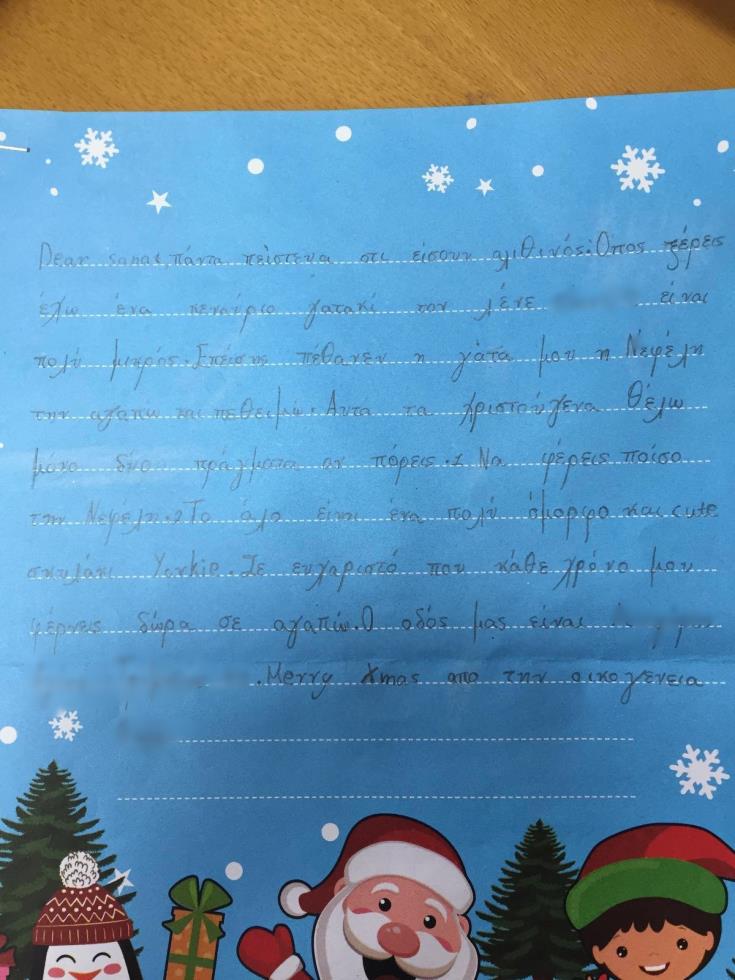 Dear sanas, πάντα πείστενα οτι είσουν αλιθινός. Οπος ξέρεις
έχω ένα κενούριο γατακί που λένε είναι
πολύ μικρός. Επείσης πέθανεν η γάτα μου η Νεφέλη
την αγαπώ και πεθειμώ. Αυτα τα χριστούγενα θέλω
μόνο δίο πράγματα αν πόρεις. 1 Να φέρεις ποίσο
την Νεφελη. 2 Το άλο είναι ένα πολύ όμορφο και cute
σκυλάκι Yorkie. Σε ευχαριστό που κάθε χρόνο μου
φέρνεις δώρα σε αγαπώ. Ο οδός μας είναι
. Merry Xmas απο την οικογένεια